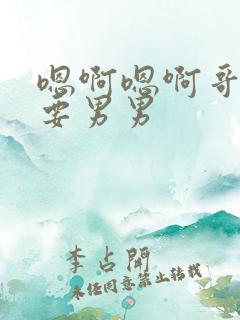 嗯啊嗯啊哥
要男男
李占開
未经同意禁止转载